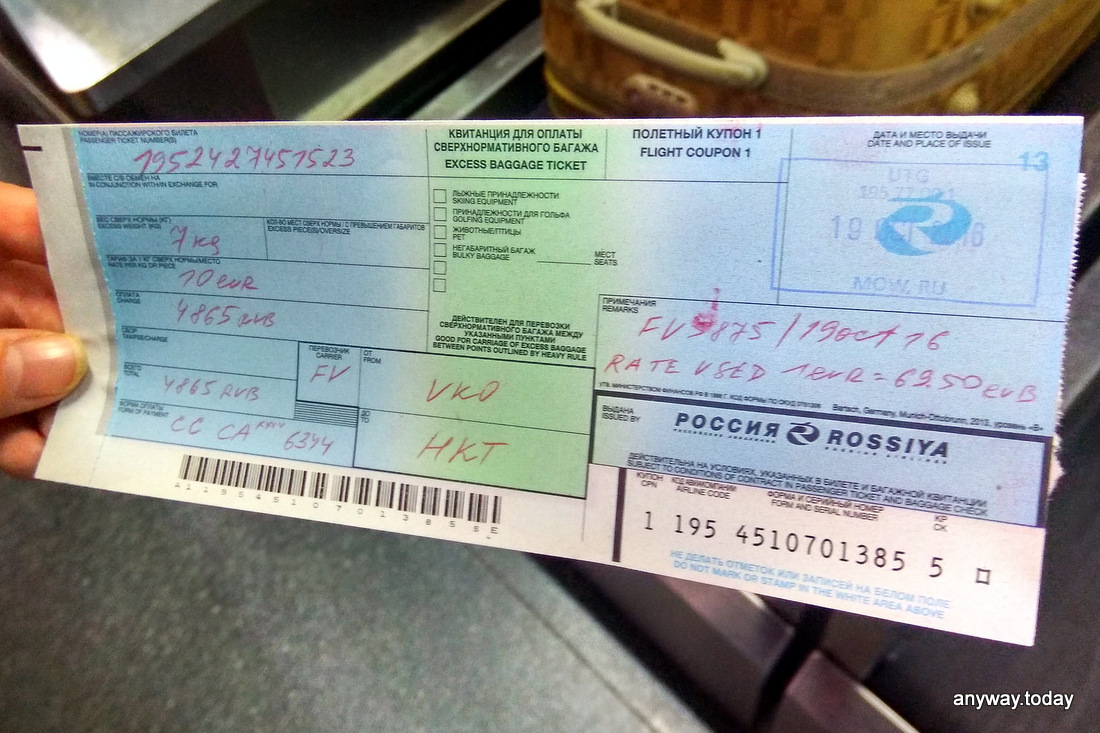 НОМЕР(А) ПАССАЖИРСКОГО БИЛЕТА
PASSENGER TICKET NUMBER(S)
1952427451523
ВМЕСТЕ С/В ОБМЕН НА
IN CONJUNCTION WITH/IN EXCHANGE FOR
ВЕС СВЕРХ НОРМЫ (КГ)
EXCESS WEIGHT (KG)
7 kg
КОЛ-ВО МЕСТ СВЕРХ НОРМЫ / С ПРЕВЫШЕНИЕМ ГАБАРИТОВ
EXCESS PIECE(S)/OVERSIZE
ТАРИФ ЗА 1 КГ СВЕРХ НОРМЫ/МЕСТО
RATE PER KG OR PIECE
10 EUR
ОПЛАТА
CHARGE
4865 RUB
СБОР
TAX/FEE/CHARGE
ВСЕГО
TOTAL
4865 RUB
ФОРМА ОПЛАТЫ
FORM OF PAYMENT
CC CA 6344
ПЕРЕВОЗЧИК
CARRIER
FV
ОТ
FROM
VKO
ДО
TO
HKT
КВИТАНЦИЯ ДЛЯ ОПЛАТЫ
СВЕРХНОРМАТИВНОГО БАГАЖА
EXCESS BAGGAGE TICKET
ЛЫЖНЫЕ ПРИНАДЛЕЖНОСТИ
SKIING EQUIPMENT
ПРИНАДЛЕЖНОСТИ ДЛЯ ГОЛЬФА
GOLFING EQUIPMENT
ЖИВОТНЫЕ/ПТИЦЫ
PET
НЕГАБАРИТНЫЙ БАГАЖ
BULKY BAGGAGE
МЕСТ
SEATS
ДЕЙСТВИТЕЛЕН ДЛЯ ПЕРЕВОЗКИ
СВЕРХНОРМАТИВНОГО БАГАЖА МЕЖДУ
УКАЗАННЫМИ ПУНКТАМИ
GOOD FOR CARRIAGE OF EXCESS BAGGAGE
BETWEEN POINTS OUTLINED BY HEAVY RULE
ПОЛЕТНЫЙ КУПОН 1
FLIGHT COUPON 1
ДАТА И МЕСТО ВЫДАЧИ
DATE AND PLACE OF ISSUE
13
UTG
MOW, RU
ПРИМЕЧАНИЯ
REMARKS
FV 5875 / 19 oct 16
RATE USED 1 EUR = 69.50 RUB
УТВ. МИНИСТЕРСТВОМ ФИНАНСОВ РФ В 1998 Г. КОД ФОРМЫ ПО ОКУД
Bartsch, Germany, Munich-Ottobrunn, 2013, уровень «В»
ВЫДАНА
ISSUED BY
РОССИЯ ROSSIYA
ДЕЙСТВИТЕЛЬНА НА УСЛОВИЯХ, УКАЗАННЫХ В БИЛЕТЕ И БАГАЖНОЙ КВИТАНЦИИ
SUBJECT TO CONDITIONS OF CONTRACT IN PASSENGER TICKET AND BAGGAGE CHECK
КУПОН
CPN
КОД АВИАКОМПАНИИ
AIRLINE CODE
ФОРМА И СЕРИЙНЫЙ НОМЕР
FORM AND SERIAL NUMBER
КР
CK
1 195 4510701385 5
НЕ ДЕЛАТЬ ОТМЕТОК ИЛИ ЗАПИСЕЙ НА БЕЛОМ ПОЛЕ
DO NOT MARK OR STAMP IN THE WHITE AREA ABOVE
A 1 1 9 5 4 5 1 0 7 0 1 3 8 5 5 E
anyway.today